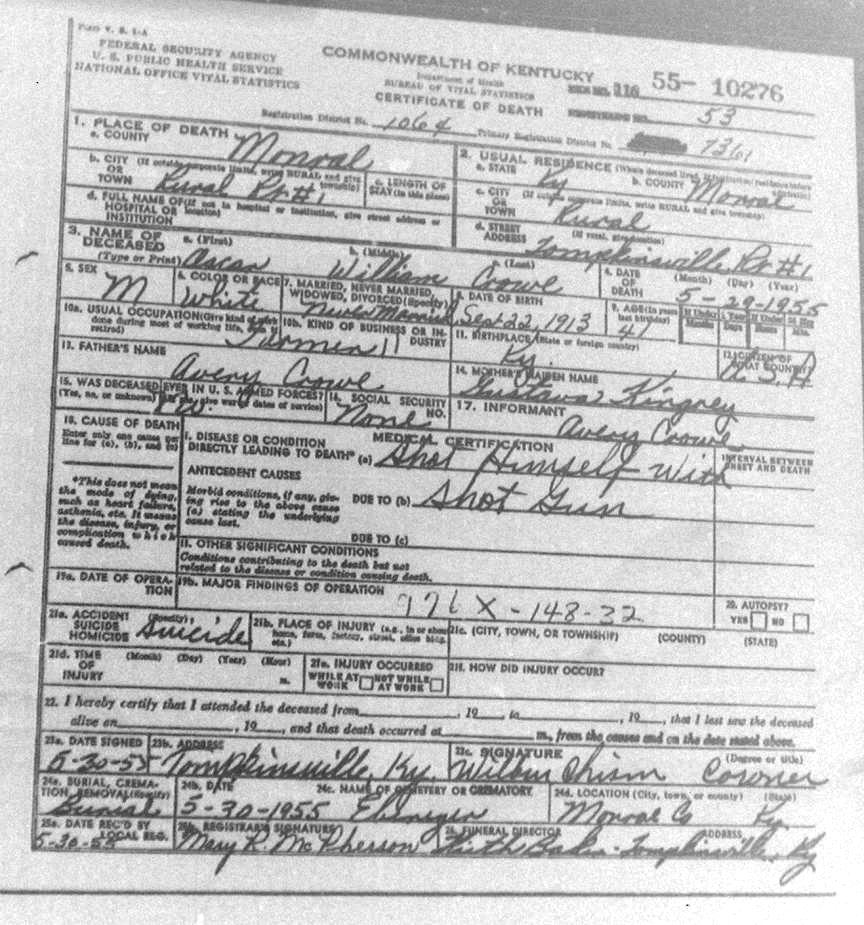 FORM V. S. 1-A
FEDERAL SECURITY AGENCY
U. S. PUBLIC HEALTH SERVICE
NATIONAL OFFICE VITAL STATISTICS
COMMONWEALTH OF KENTUCKY
Department of Health
BUREAU OF VITAL STATISTICS
CERTIFICATE OF DEATH
116 55- 10276
53
Registration District No. 1064 Primary Registration District No. 7361
1. PLACE OF DEATH
a. COUNTY Monroe
b. CITY (If outside corporate limits, write RURAL and give township)
OR
TOWN Rural Rt #1
c. LENGTH OF STAY (in this place)
d. FULL NAME OF (If not in hospital or institution, give street address or location)
HOSPITAL OR
INSTITUTION
2. USUAL RESIDENCE (Where deceased lived. If institution: residence before admission)
a. STATE Ky b. COUNTY Monroe
c. CITY (If outside corporate limits, write RURAL and give township)
OR
TOWN Rural
d. STREET (If rural, give location)
ADDRESS Tompkinsville, Rt #1
3. NAME OF DECEASED (Type or Print)
a. (First) Oscar b. (Middle) William c. (Last) Crowe
4. DATE OF DEATH (Month) (Day) (Year) 5-29-1955
5. SEX M
6. COLOR OR RACE White
7. MARRIED, NEVER MARRIED, WIDOWED, DIVORCED (Specify) Never Married
8. DATE OF BIRTH Sept 22, 1913
9. AGE (In years last birthday) 41
If Under 1 Year Months Days If Under 24 Hrs Hours Min.
10a. USUAL OCCUPATION (Give kind of work done during most of working life, even if retired) Farmer
10b. KIND OF BUSINESS OR INDUSTRY
11. BIRTHPLACE (State or foreign country) Ky.
12. CITIZEN OF WHAT COUNTRY? U.S.A
13. FATHER'S NAME Avery Crowe
14. MOTHER'S MAIDEN NAME Gustava Kingrey
15. WAS DECEASED EVER IN U. S. ARMED FORCES?
(Yes, no, or unknown) (If yes, give war or dates of service)
16. SOCIAL SECURITY NO. None
17. INFORMANT Avery Crowe
18. CAUSE OF DEATH
Enter only one cause per line for (a), (b), and (c)
*This does not mean the mode of dying, such as heart failure, asthenia, etc. It means the disease, injury, or complication which caused death.
MEDICAL CERTIFICATION
INTERVAL BETWEEN ONSET AND DEATH
I. DISEASE OR CONDITION
DIRECTLY LEADING TO DEATH* (a) Shot Himself With
ANTECEDENT CAUSES
Morbid conditions, if any, giving rise to the above cause (a) stating the underlying cause last.
DUE TO (b) Shot Gun
DUE TO (c)
II. OTHER SIGNIFICANT CONDITIONS
Conditions contributing to the death but not related to the disease or condition causing death.
19a. DATE OF OPERATION
19b. MAJOR FINDINGS OF OPERATION
976X-148-32
20. AUTOPSY?
YES NO
21a. ACCIDENT SUICIDE HOMICIDE (Specify) Suicide
21b. PLACE OF INJURY (e.g., in or about home, farm, factory, street, office bldg. etc.)
21c. (CITY, TOWN, OR TOWNSHIP) (COUNTY) (STATE)
21d. TIME OF INJURY (Month) (Day) (Year) (Hour) m.
21e. INJURY OCCURRED
WHILE AT WORK NOT WHILE AT WORK
21f. HOW DID INJURY OCCUR?
22. I hereby certify that I attended the deceased from , 19 , to , 19 , that I last saw the deceased
alive on , 19 , and that death occurred at m., from the causes and on the date stated above.
23a. DATE SIGNED 5-30-55
23b. ADDRESS Tompkinsville, Ky.
23c. SIGNATURE Wilbur Chism (Degree or title) Coroner
24a. BURIAL, CREMATION, REMOVAL (Specify) Burial
24b. DATE 5-30-1955
24c. NAME OF CEMETERY OR CREMATORY Ebenezer
24d. LOCATION (City, town, or county) (State) Monroe Co Ky
25a. DATE REC'D BY LOCAL REG. 5-30-55
25b. REGISTRAR'S SIGNATURE Mary R. McPherson
26. FUNERAL DIRECTOR ADDRESS
Keith Baker - Tompkinsville, Ky